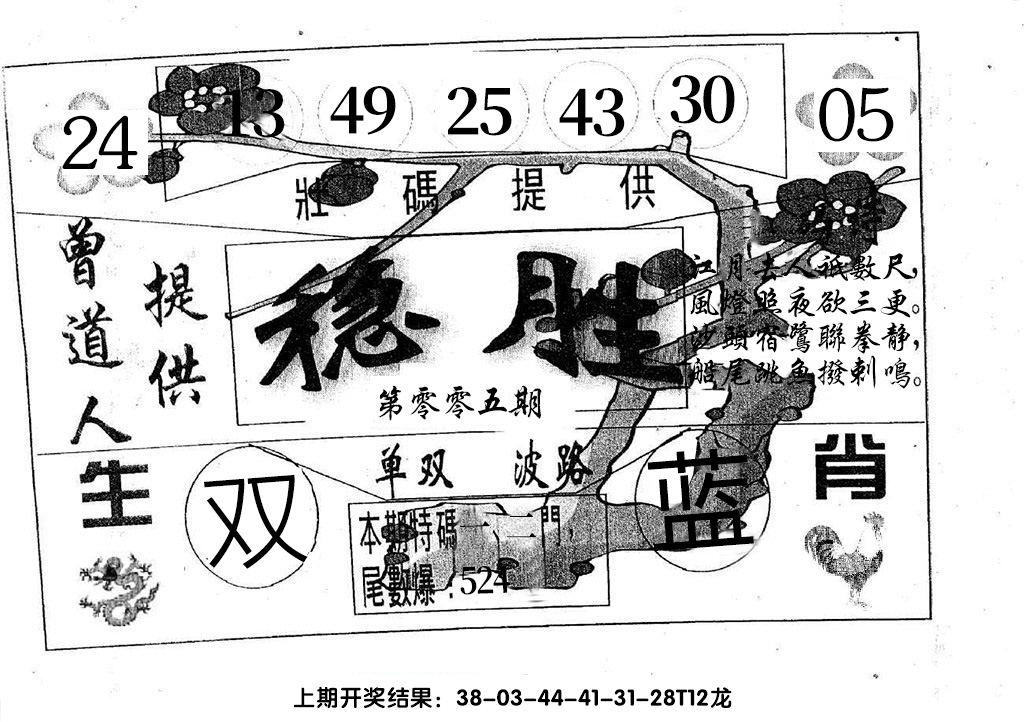 24 13 49 25 43 30 05
壯碼提供
曾道人
提供
稳胜
第零零五期
特
江月去人祇數尺，
風燈照夜欲三更。
沙頭宿鷺聯拳静，
船尾跳魚撥剌鳴。
单双 波路
生肖
双
蓝
本期特碼一、二門，
尾數爆：524
上期开奖结果：38-03-44-41-31-28T12龙